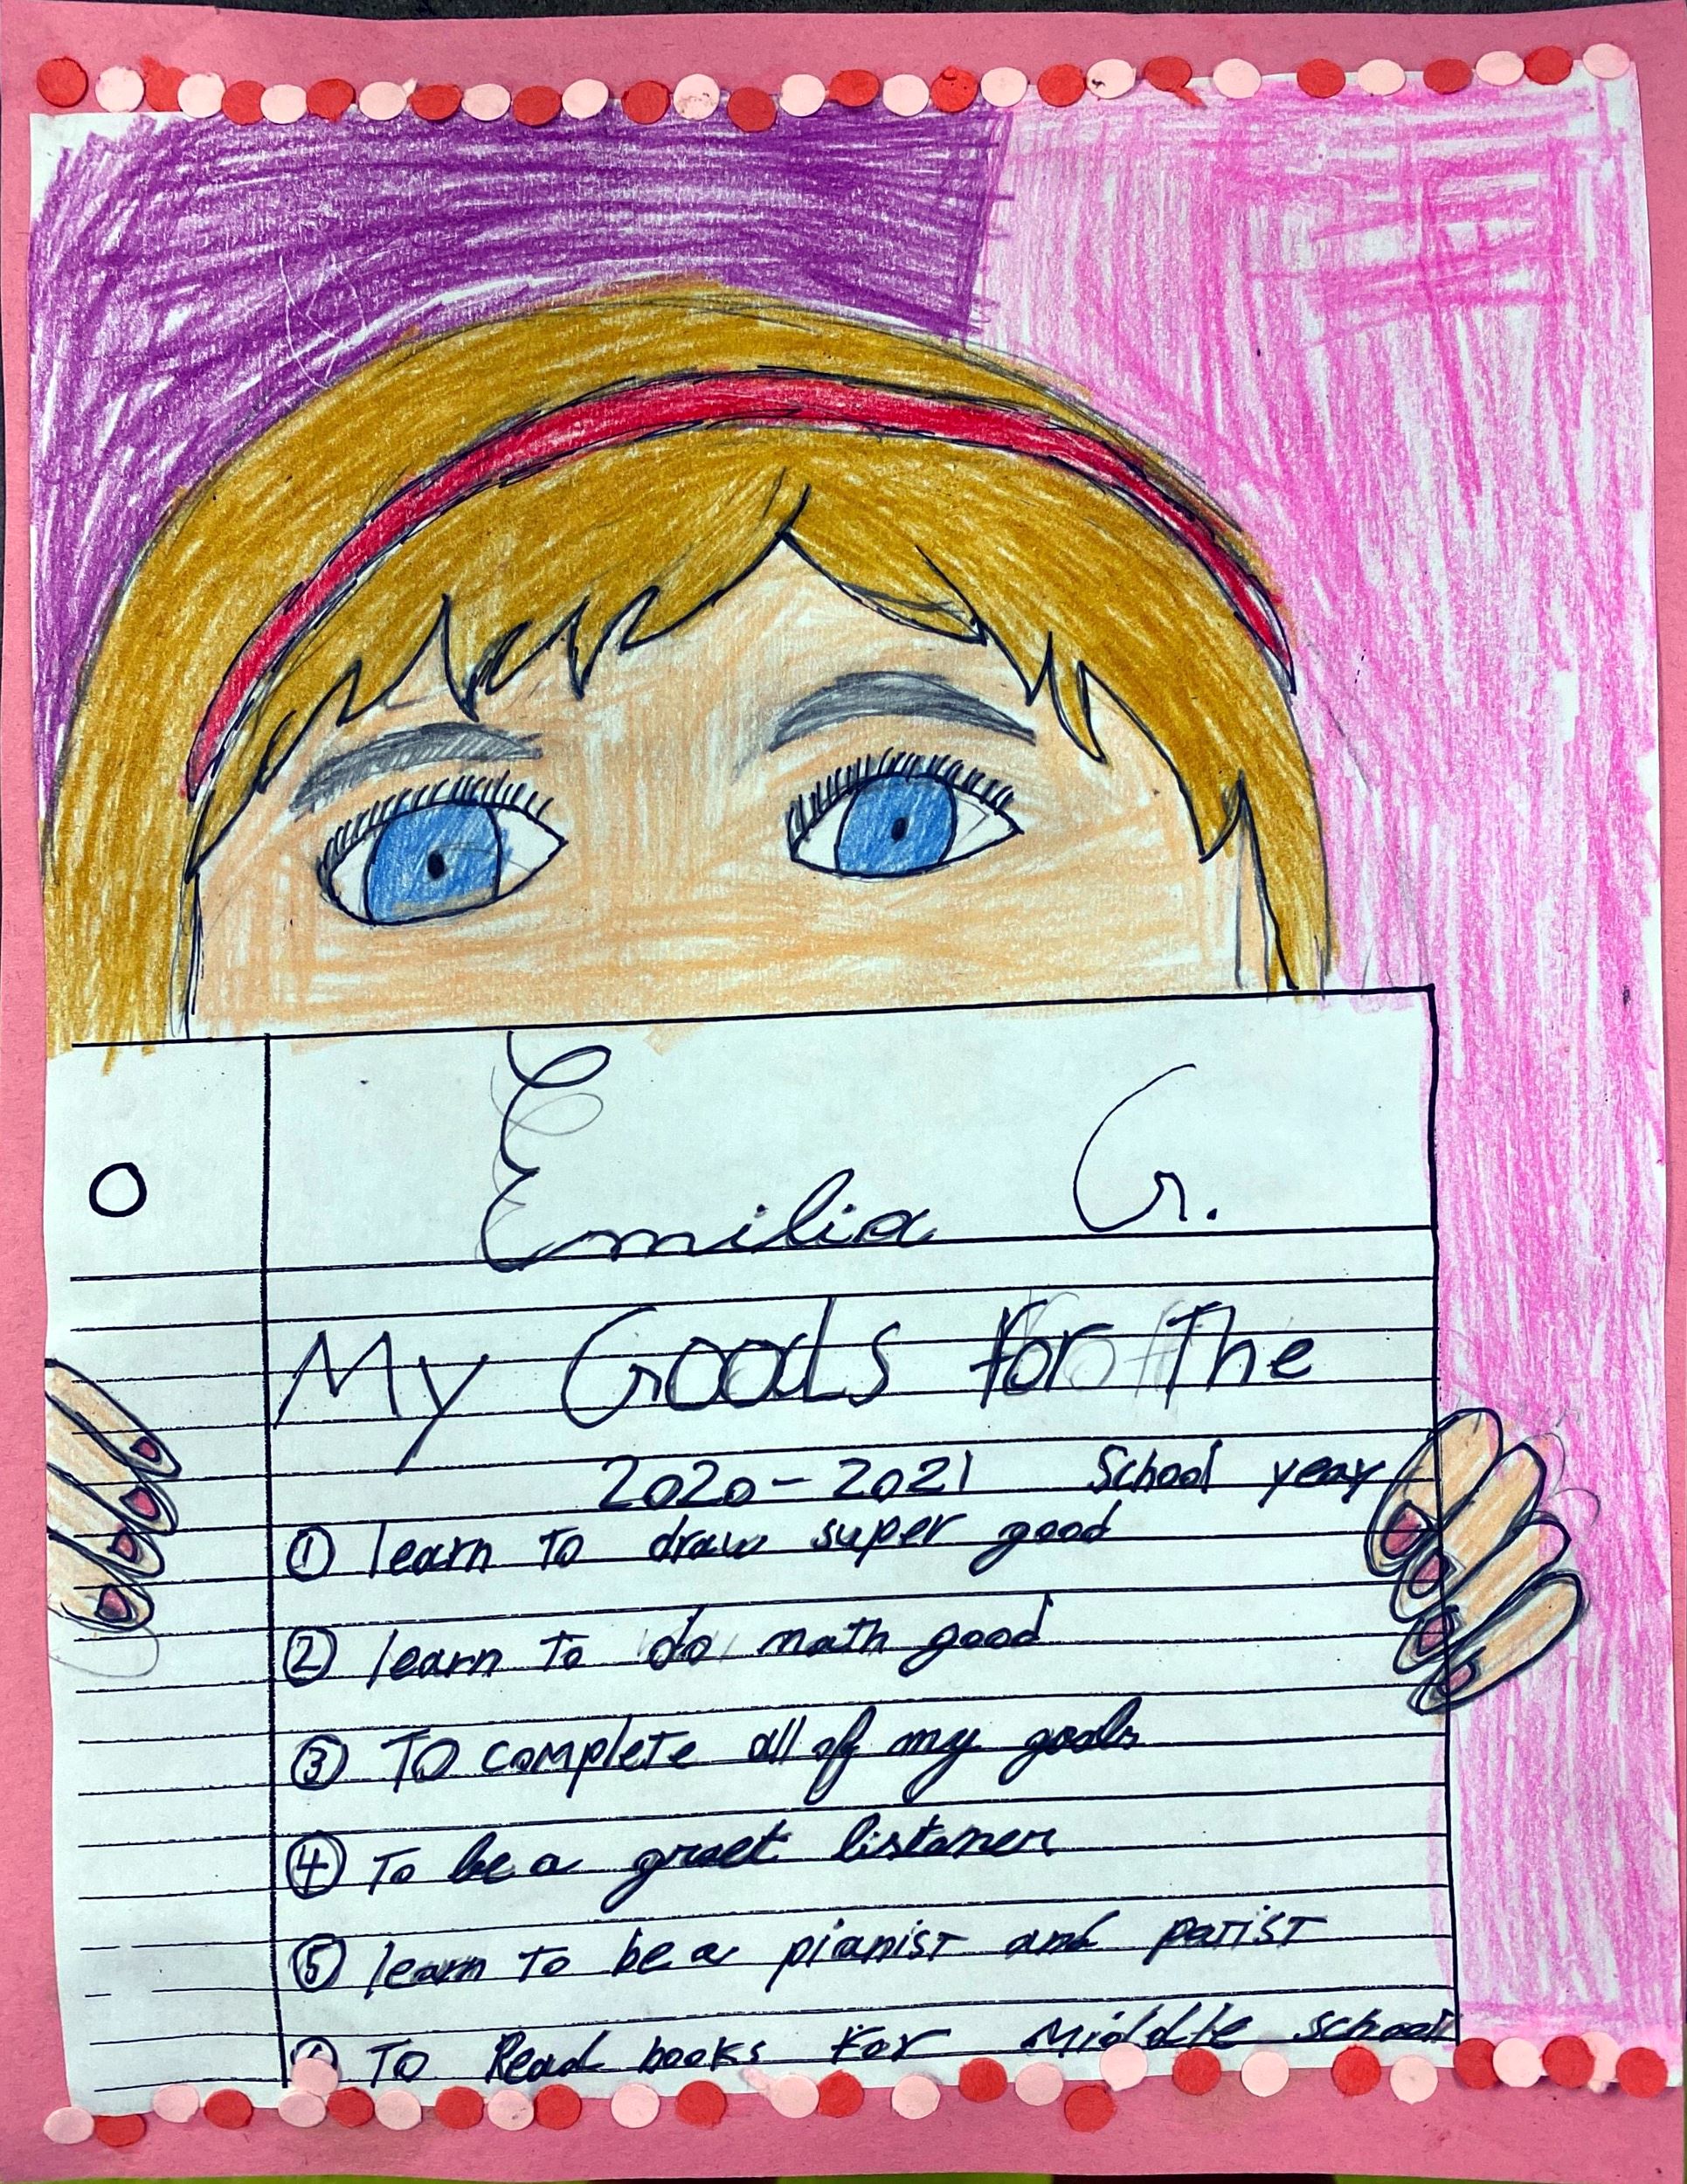 Emilia G.
My Goals for The
2020-2021 School year
① learn To draw super good
② learn to do math good
③ To complete all of my goals
④ To be a graet listaner
⑤ learn to be a pianist and parist
⑥ To Read books For Middle school